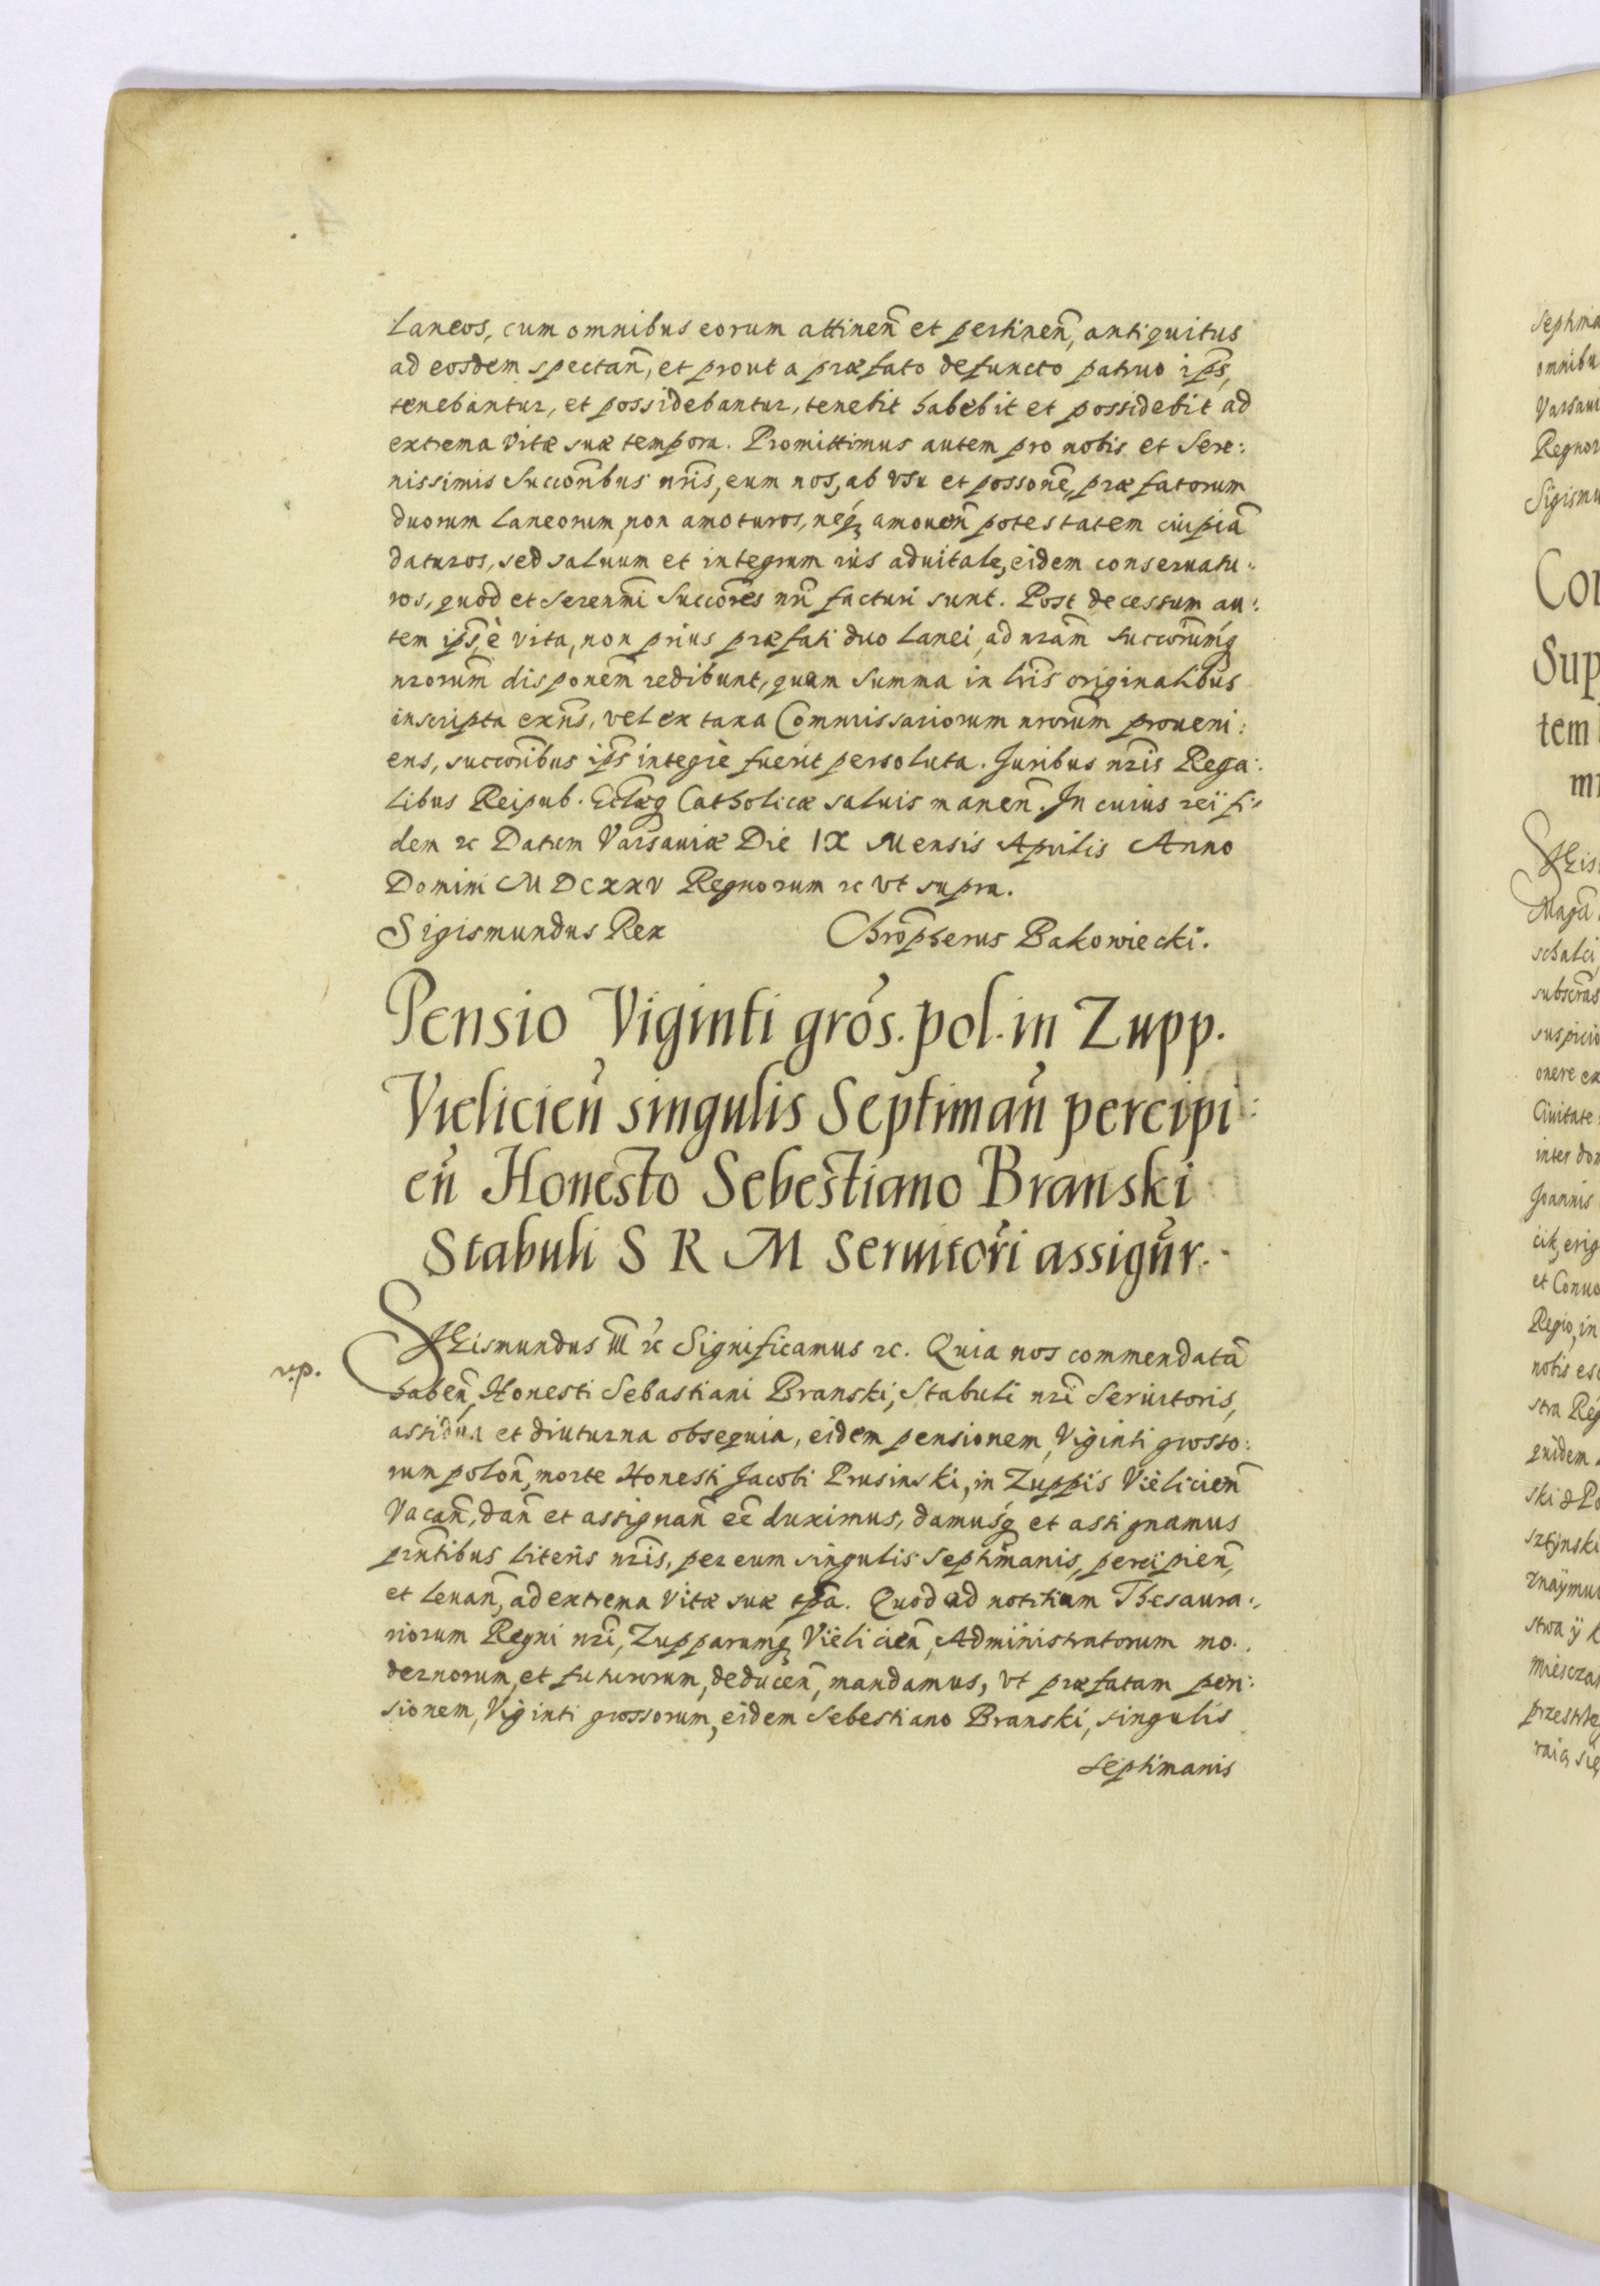 Laneos, cum omnibus eorum attineñ et pertineñ, antiquitus
ad eosdem spectañ, et prout a præfato defuncto patruo ip̃s,
tenebantur, et possidebantur, tenebit habebit et possidebit ad
extrema vitæ suæ tempora. Promittimus autem pro nobis et Sere:
nissimis Succoribus nris, eum nos, ab vsu et possone, præfatorum
duorum Laneorum, non amoturos, neq₃ amoueñ potestatem cuipiã
daturos, sed saluum et integrum ius aduitale, eidem conseruatu:
ros, quod et Serenmi Succores nri facturi sunt. Post decessum au:
tem ip̃s è vita, non prius præfati duo Lanei, ad nram succorumq́
nrorum disponem redibunt, quam Summa in lris originalibus
inscripta exñs, vel ex taxa Commissariorum nrorum proueni:
ens, succoribus ip̃s integrè fuerit persoluta. Juribus nris Rega:
libus Reipub. Eclæq Catholicæ saluis maneñ. In cuius rei fi:
dem ꝛc Datum Varsauiæ Die IX Mensis Aprilis Anno
Domini M DCXXV Regnorum ꝛc vt supra.
Sigismundus Rex Chrõpherus Bakowiecki.
Pensio Viginti gros. pol. in Zupp.
Vielicieñ singulis Septimañ percipi:
eñ Honesto Sebestiano Branski
Stabuli S R M Seruitori assigñr.
SIGismundus III ꝛc Significamus ꝛc. Quia nos commendatã
r.p.
habeñ, Honesti Sebastiani Branski, Stabuli nri Seruitoris,
assidua et diuturna obsequia, eidem pensionem, Viginti grosso:
rum poloñ, morte Honesti Jacobi Prusinski, in Zuppis Vielicieñ
Vacañ, dañ et assignañ eẽ duximus, damusq́ et assignamus
pr̃ntibus literis nris, per eum singulis septimanis, percipieñ,
et leuañ, ad extrema vitæ suæ tp̃a. Quod ad notitiam Thesaura:
riorum Regni nri, Zupparumq₃ Vielicieñ, Administratorum mo:
dernorum, et futurorum, deduceñ, mandamus, vt præfatam pen:
sionem, Viginti grossorum, eidem Sebestiano Branski, singulis
septimanis